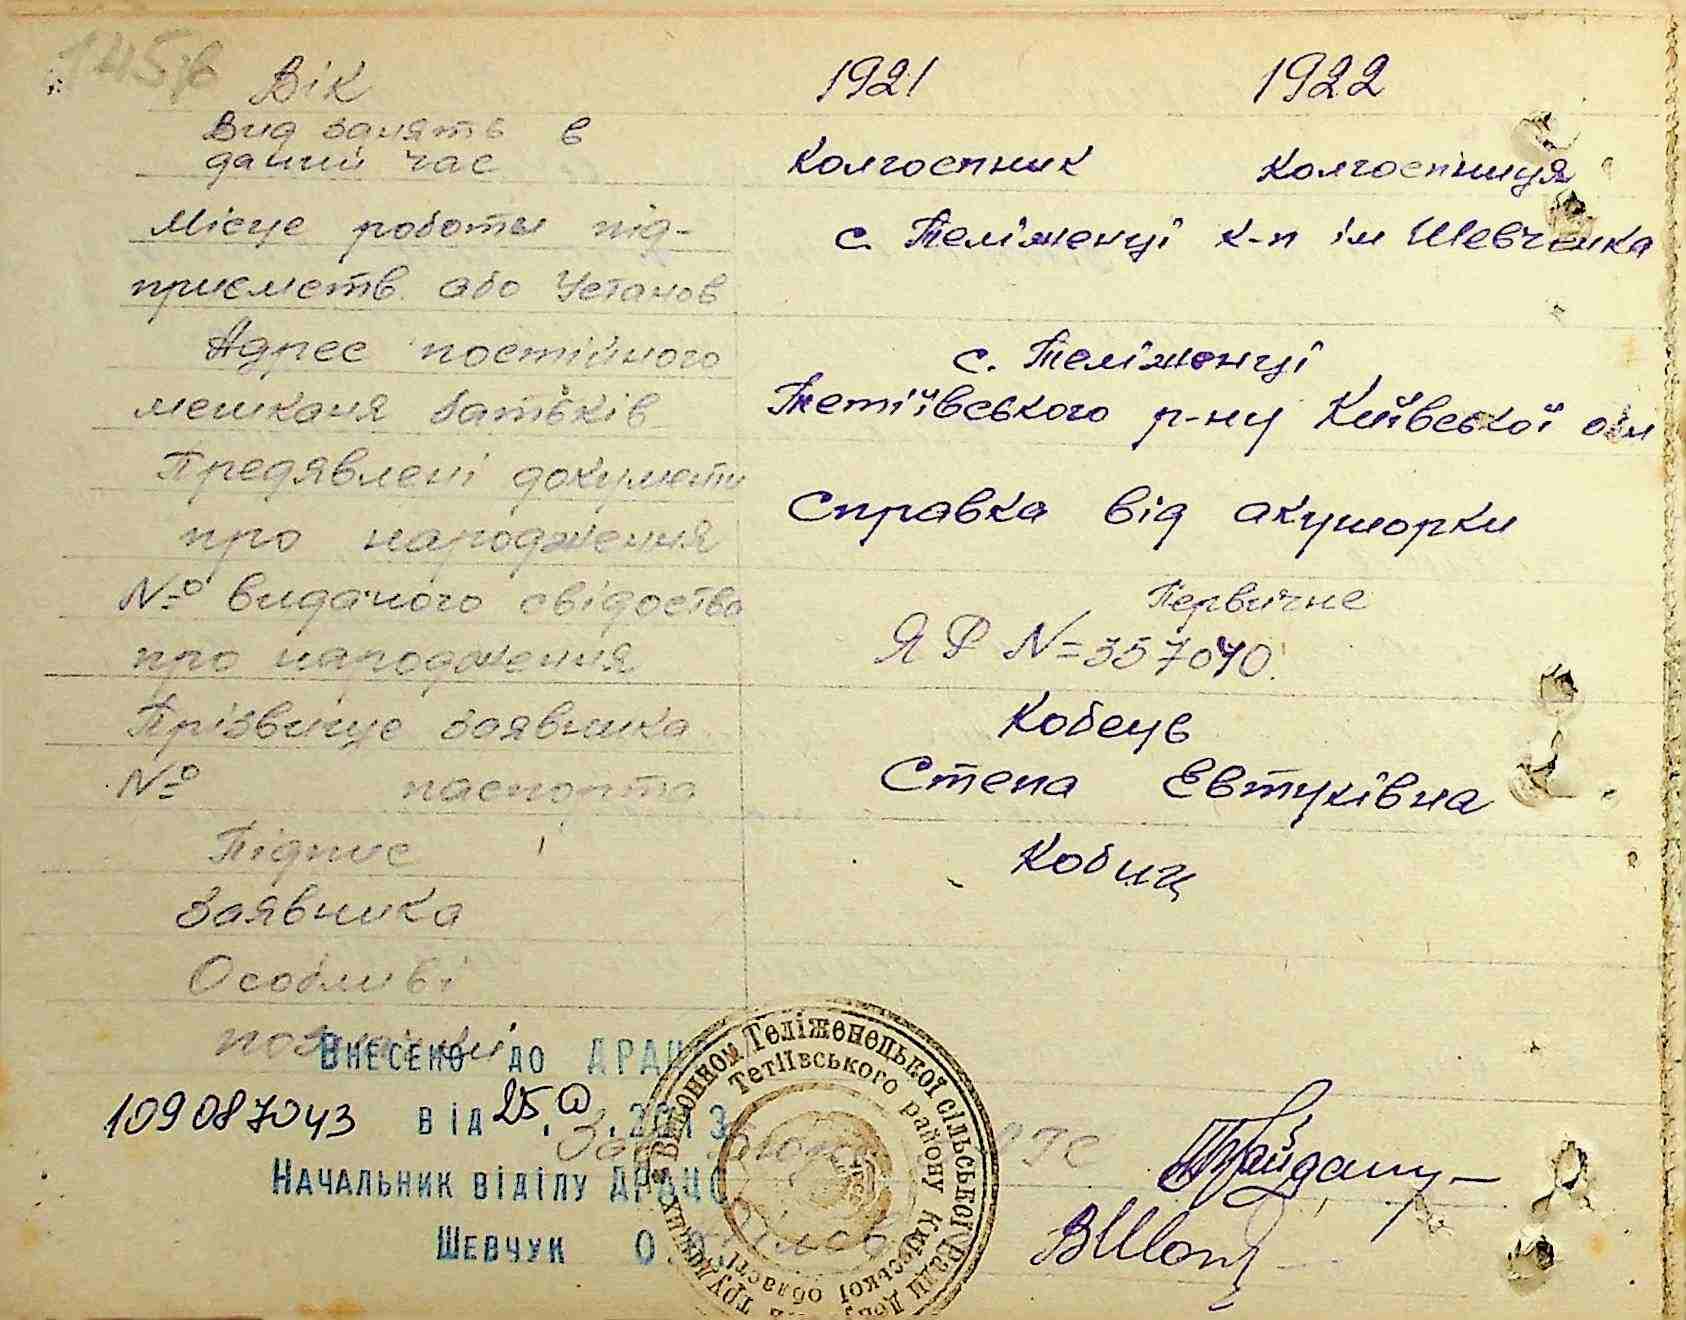 145
Вік 1921 1922
Вид занять в
даний час колгоспник колгоспниця
Місце роботи під- с. Теліженці к-п ім Шевченка
приємств або Установ
Адрес постійного с. Теліженці
мешканя батьків Тетіївського р-ну Київської обл
Предявлені документи
про народження Справка від акушорки
№ виданого свідоства Первичне
про народження Я Р № 357040.
Прізвище заявника Кобець
№ паспорта Степа Евтухівна
Підпис Кобиц
Заявника
Особливі
познач
Внесено до ДРАЦ
109087043 від 25. .2013
ЗАГС
Начальник відділу ДРАЦС
Шевчук О.
Виконком Теліженецької сільської Ради Деп трудящих
Тетіївського району Київської області